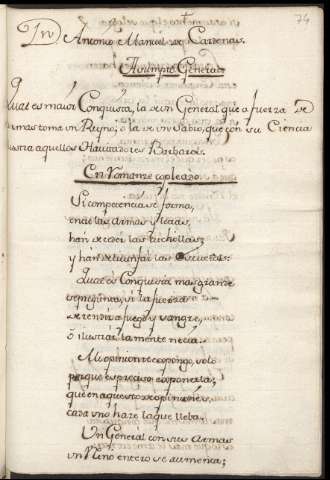 74
Dn Antonio Manuel de Cardenas.
Asumpto General.
Qual es maior Conquista, la de un General que a fuerza de
armas toma un Reyno; o la de un Sabio, que con su Ciencia
ilustra aquellos Havitadores Barbaros.
En Romanze copleado.
Si competencia se forma,
entre las armas y letras,
han de ceder las cuchillas;
y han de triunfar las Escuelas:
Qual es Conquista mas grande
se pregunta, si la fuerza
de rendir a fuego y sangre,
ò ilustrar la mente necia.
Mi opinion te expongo, solo
porque es preciso exponerla;
que en aquesto de opiniones,
cada uno haze la que lleba.
Un General con sus armas
un Reino entero se aumenta;